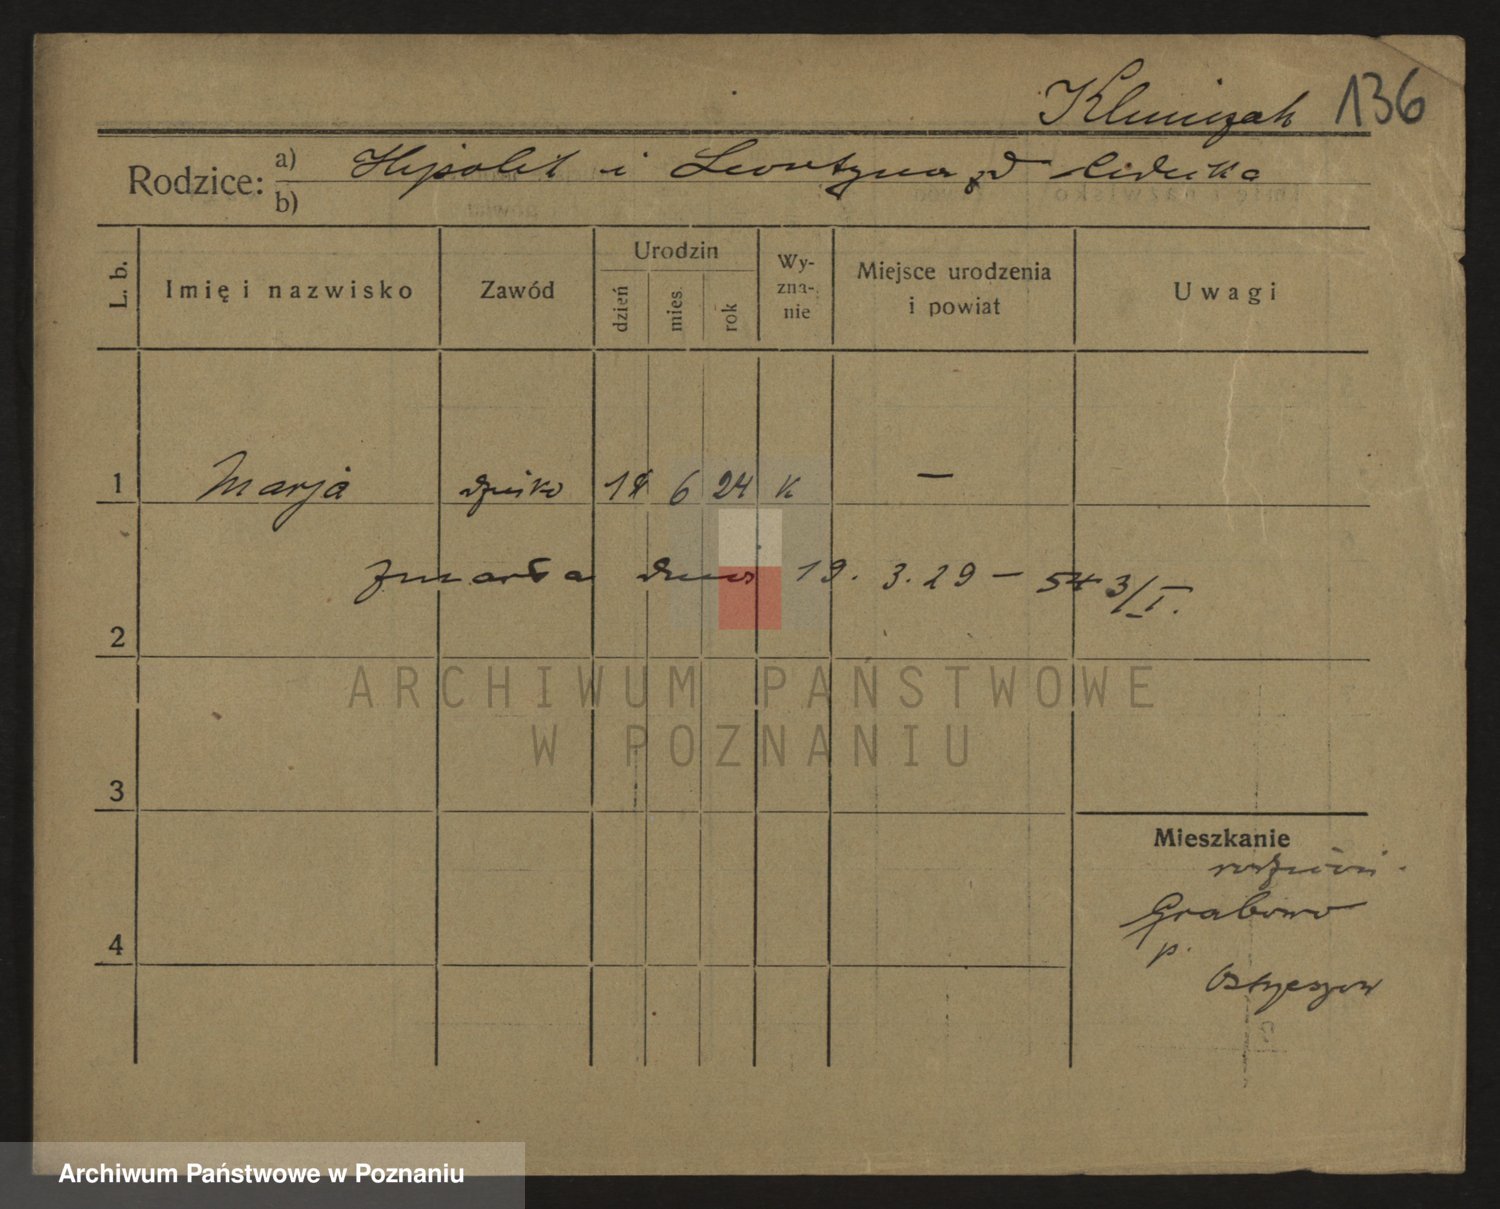 Klimczak 136
Rodzice: a) Hipolit i Leontyna z d.
b)
L. b.
Imię i nazwisko
Zawód
Urodzin
dzień
mies.
rok
Wy-
zna-
nie
Miejsce urodzenia
i powiat
Uwagi
1 Marja dziecko 6 24 K —
zmarła dnia 19. 3. 29 – 543/I.
2
ARCHIWUM PAŃSTWOWE
W POZNANIU
3
Mieszkanie
rodziców
Grabowo
4
p.
Ostrzeszów
Archiwum Państwowe w Poznaniu